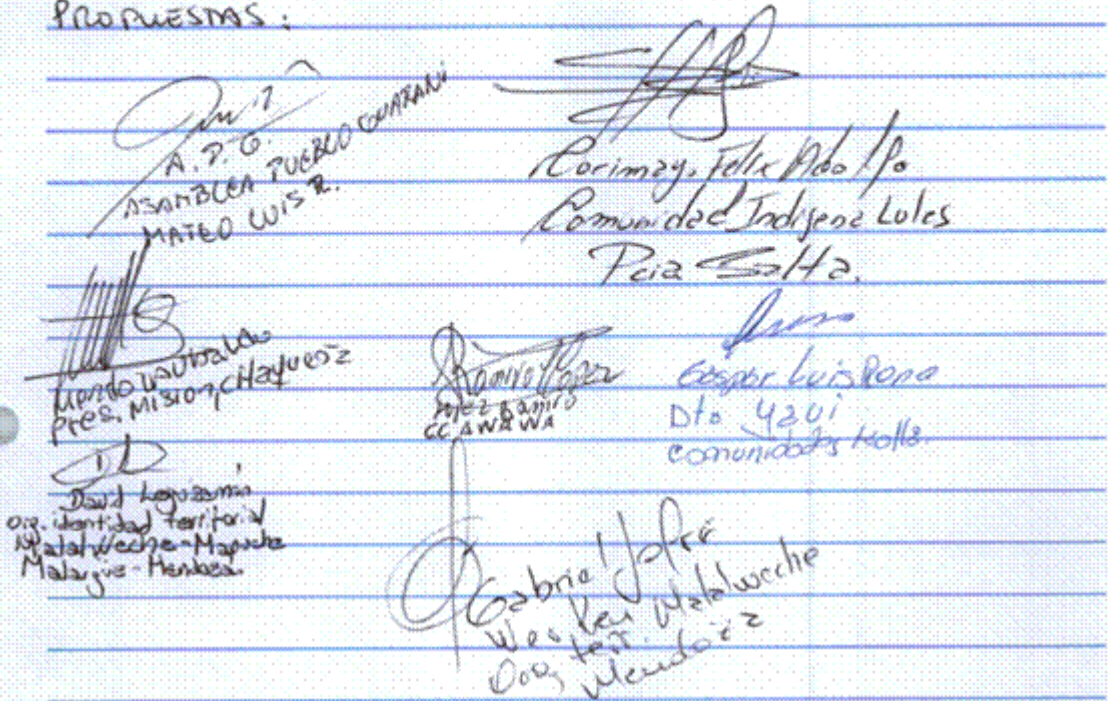 PROPUESTAS:
A. P. G.
ASAMBLEA PUEBLO GUARANI
MATEO LUIS R.
Corimayo, Felix Adolfo
Comunidad Indigena Lules
Pcia Salta.
Pres. Mision Chaqueña
Ramiro Lopez
Lopez Ramiro
CC AWAWA
Gaspar Luis
Dto Yavi
Comunidades Kolla.
David
Org. identidad territorial
Malalweche-Mapuche
Malargüe-Mendoza.
Gabriel Jofré
Werken Malalweche
Org. terr.
Mendoza